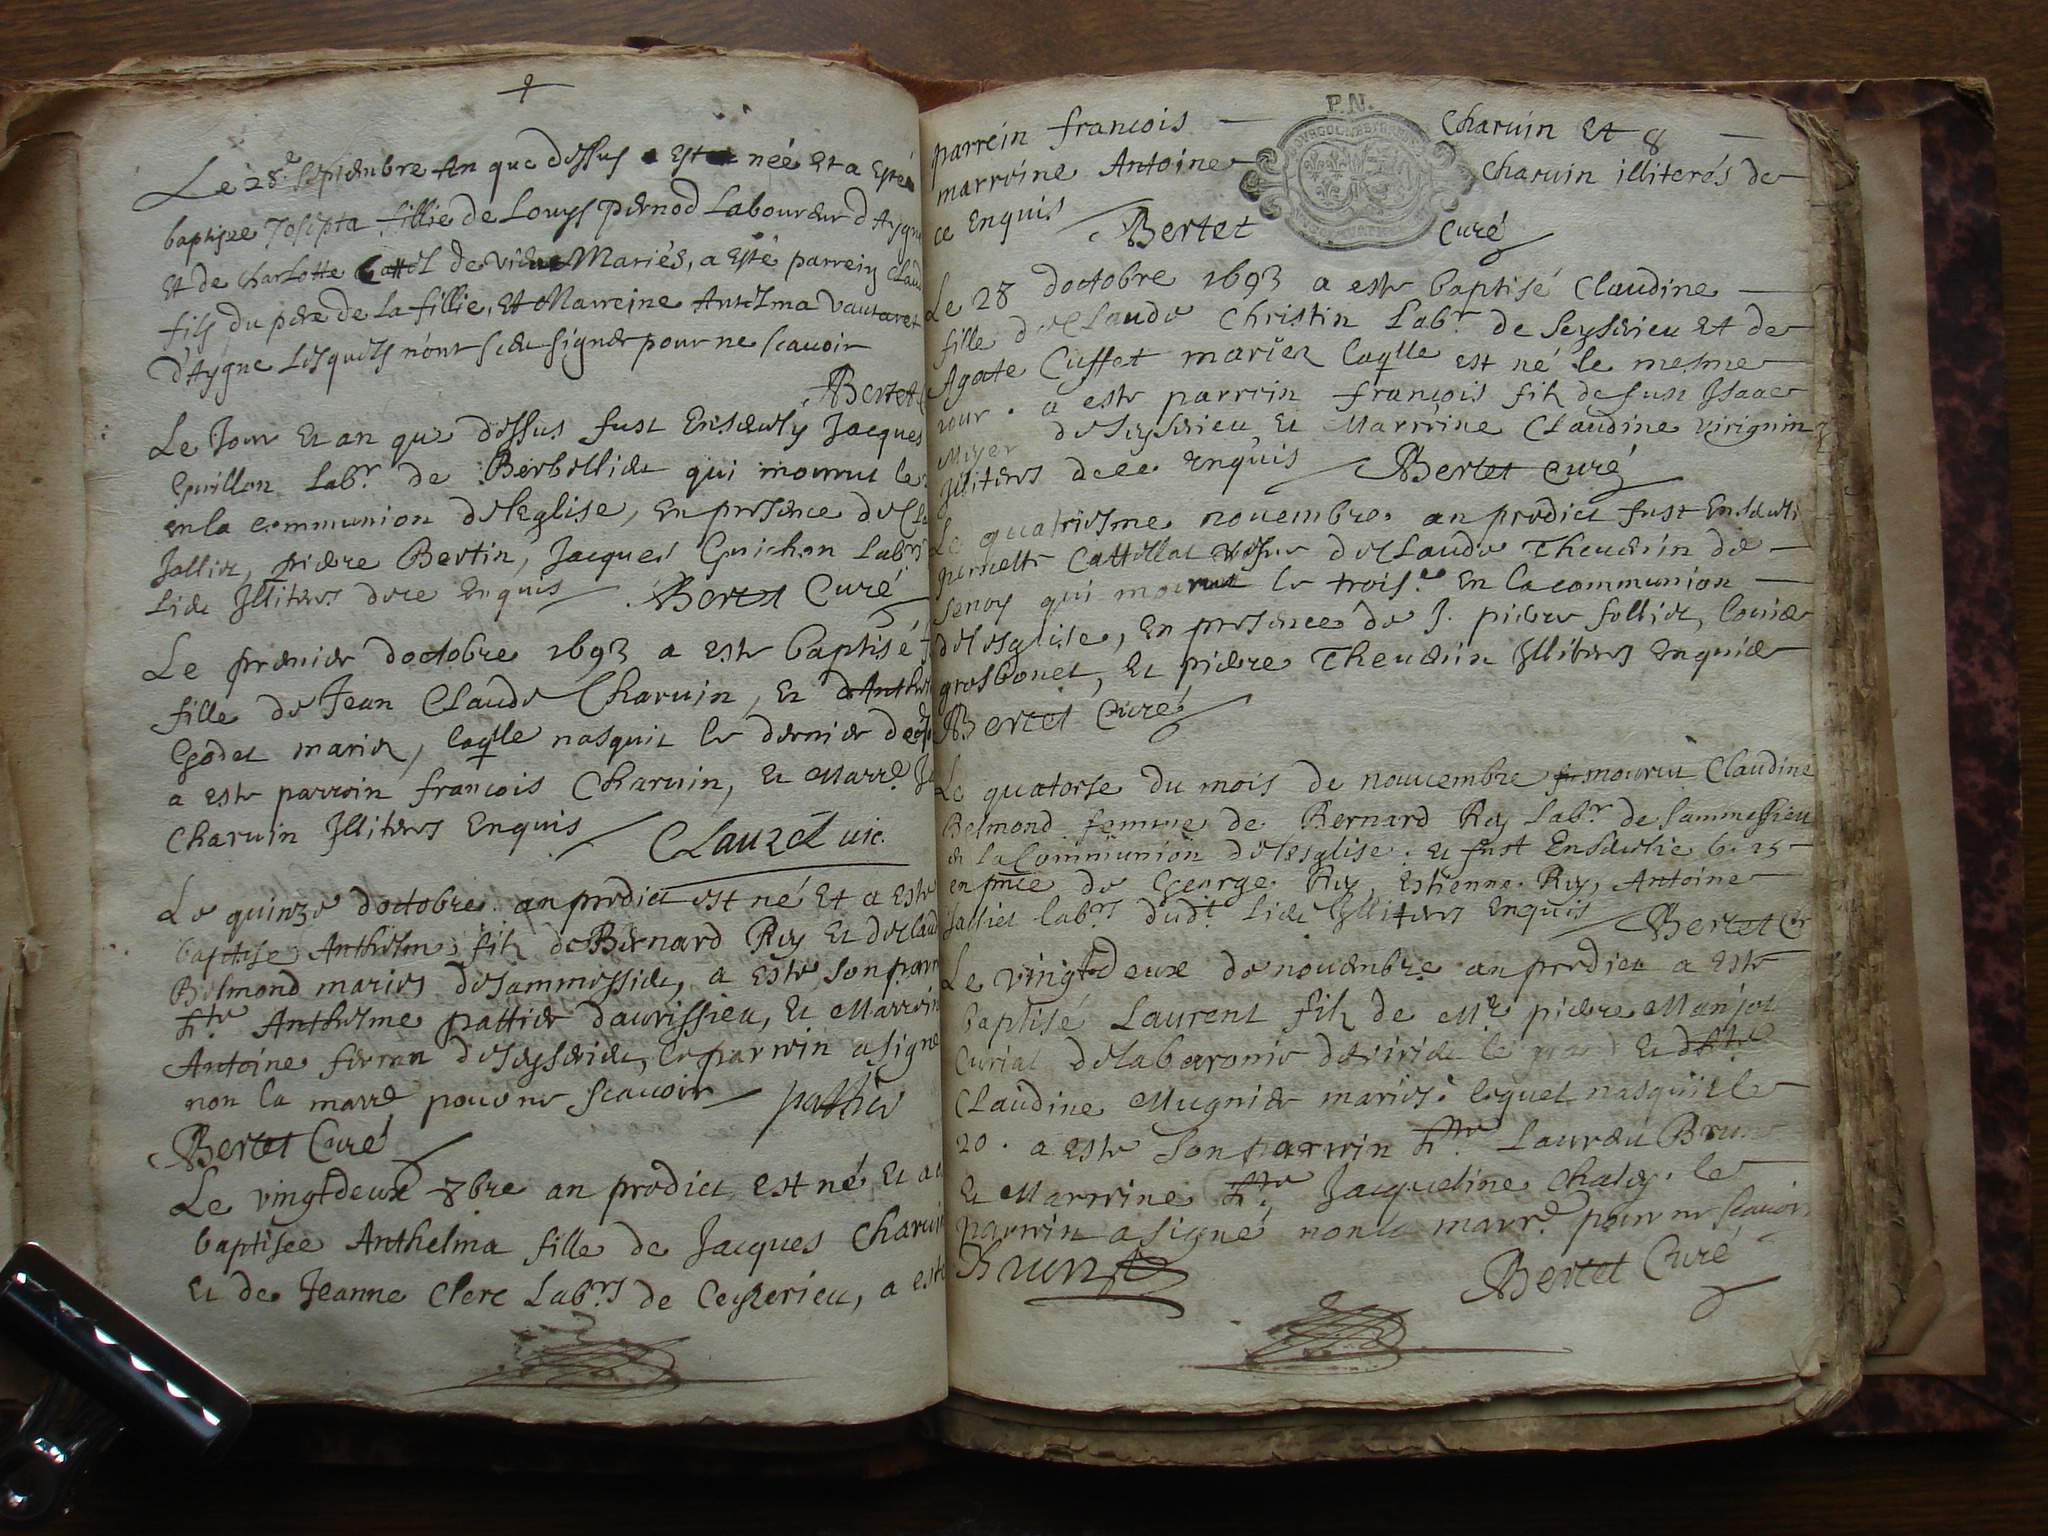 Le 28e septembre An que dessus est née Et a Esté
baptisee Josepta fillie de Louys pernod Laboureur d'Aygne
Et de Charlotte de Mariés, a Esté parrein Claud
fils du pere de la fillie, Et Marreine Antelma Vautaret
d'Aygne lesquels n'ont sceu signer pour ne scavoir
Bertet
Le Jour Et an que dessus fust Ensevely Jacques
Guillon Labr. de Berbellieu qui mourut le
en la communion de l'Eglise, En presence de Cl
Jallier, pierre Bertin, Jacques Guichon Labrs
lieu Illiteres de ce Enquis Bertet Curé
Le premier doctobre 1693 a este baptisé
fille de Jean Claude Charvin, Et d'Anthel
Godet mariez, laqlle nasquit le dernier de
a este parrein francois Charvin, Et Marre
Charvin Illiteres Enquis Clauzel vic.
Le quinze doctobre an predict est né Et a Esté
baptise Anthelme filz de Bernard Rey Et de Claud
Belmond maries de sammessieu, a Este son parr
hte Anthelme pattier d'avrissieu, Et Marrein
Antoine ferran de seyserieu, le parrein a signe
non la marre pour ne scavoir pattier
Bertet Curé
Le vingt deux 8bre an predict est né Et a
baptisee Anthelma fille de Jacques Charvin
Et de Jeanne Clerc Labrs de Ceyzerieu, a esté
P.N.
parrein francois Charvin Et
marreine Antoine Charvin illiterés de
ce Enquis Bertet Curé
Le 28 doctobre 1693 a este baptisé Claudine
fille de Claude Christin Labr. de Seyserieu Et de
Agate Cuffet mariez laqlle est né le mesme
jour. a este parrein françois filz de feu Isaac
Meyer de Seyserieu Et Marreine Claudine virignin
Illiteres de ce Enquis Bertet Curé
Le quatriesme novembre an predict fust Enseveli
pernette Cattillat vefve de Claude Theudrin de
senoy qui mourut le trois.e En la communion
de l'esglise, En presence de J. pierre follier, louis
grosbonet, Et pierre Theudrin Illiteres Enquis
Bertet Curé
Le quatorse du mois de nouvembre mourut Claudine
Belmond femme de Bernard Rey Labr. de Sammessieu
En la Communion de l'Esglise. Et fust Ensevelie le 15
en pnce de George Rey, Estienne Rey, Antoine
Jallier labrs dudt. lieu Illiteres Enquis Bertet
Le vingt deux de novembre an predict a Este
baptisé Laurent filz de Mre pierre Manjot
Curial de la baronie de virieu le grand Et d'hte
Claudine Mugnier maries. lequel nasquit le
20. a Este son parrein hte. Laurent Brun
Et Marreine hte. Jacqueline Chaley. le
parrein a signé non la marre. pour ne scavoir
Brun
Bertet Curé